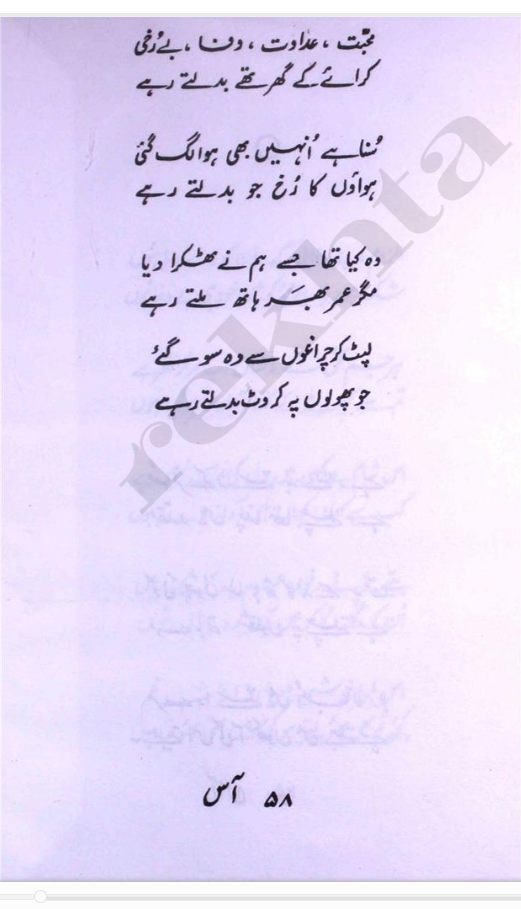 محبّت ، عداوت ، وفا ، بے رُخی
کرائے کے گھر تھے بدلتے رہے
سُنا ہے اُنہیں بھی ہوا لگ گئی
ہواؤں کا رُخ جو بدلتے رہے
وہ کیا تھا جسے ہم نے ٹھکرا دیا
مگر عمر بھر ہاتھ ملتے رہے
لپٹ کر چراغوں سے وہ سو گئے
جو پھولوں پہ کروٹ بدلتے رہے
rekhta
۵۸ آس